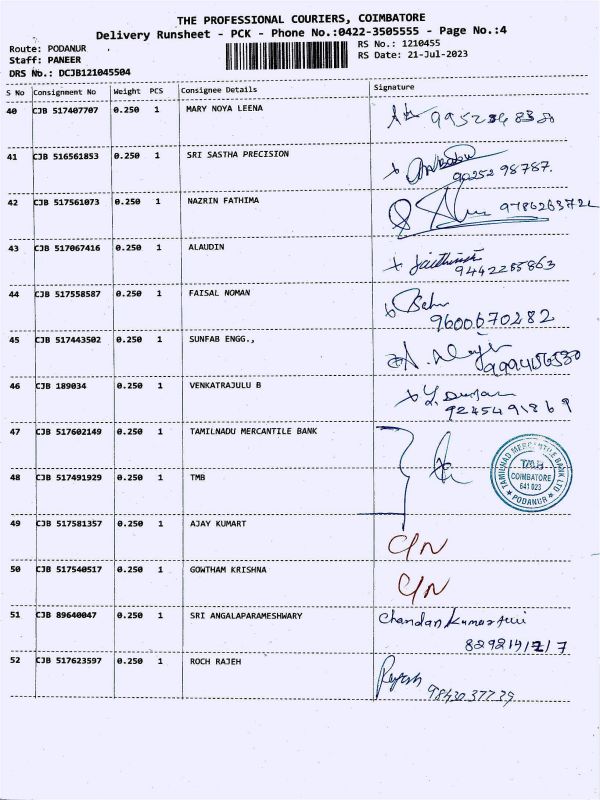 THE PROFESSIONAL COURIERS, COIMBATORE
Delivery Runsheet - PCK - Phone No.:0422-3505555 - Page No.:4
Route: PODANUR
RS No.: 1210455
Staff: PANEER
RS Date: 21-Jul-2023
DRS No.: DCJB121045504
S No Consignment No Weight PCS Consignee Details Signature
40 CJB 517407707 0.250 1 MARY NOYA LEENA
41 CJB 516561853 0.250 1 SRI SASTHA PRECISION
90252 98787.
42 CJB 517561073 0.250 1 NAZRIN FATHIMA
43 CJB 517067416 0.250 1 ALAUDIN
9442265863
44 CJB 517558587 0.250 1 FAISAL NOMAN
9600670282
45 CJB 517443502 0.250 1 SUNFAB ENGG.,
46 CJB 189034 0.250 1 VENKATRAJULU B
9245491869
47 CJB 517602149 0.250 1 TAMILNADU MERCANTILE BANK
TAMILNAD MERCANTILE BANK LTD
TMB
COIMBATORE
641 023
PODANUR
48 CJB 517491929 0.250 1 TMB
49 CJB 517581357 0.250 1 AJAY KUMART
C/N
50 CJB 517540517 0.250 1 GOWTHAM KRISHNA
C/N
51 CJB 89640047 0.250 1 SRI ANGALAPARAMESHWARY
Chandan Kumar
52 CJB 517623597 0.250 1 ROCH RAJEH
9843037739